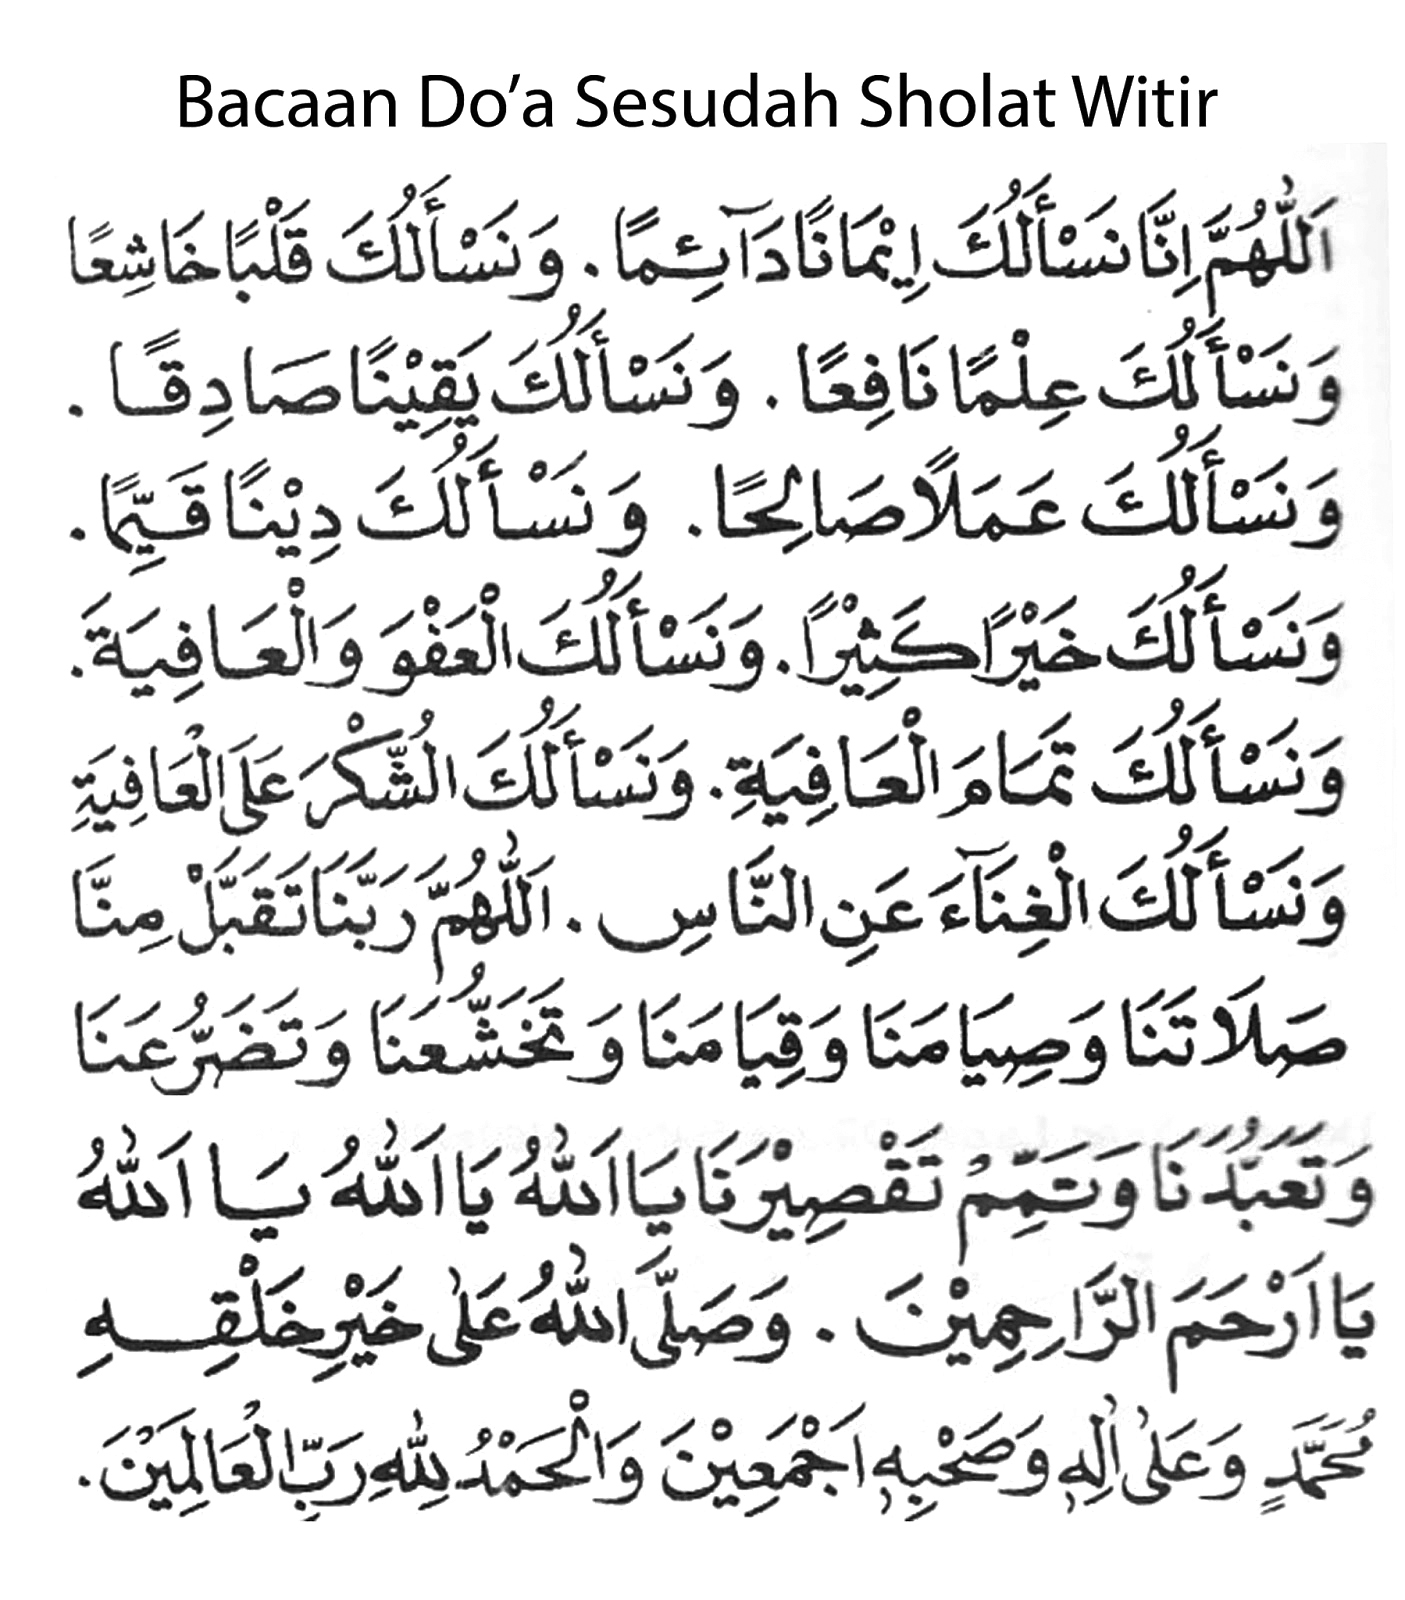 Bacaan Do’a Sesudah Sholat Witir
اَللّٰهُمَّ اِنَّا نَسْأَلُكَ اِيْمَانًا دَآئِمًا . وَنَسْأَلُكَ قَلْبًا خَاشِعًا
وَنَسْأَلُكَ عِلْمًا نَافِعًا . وَنَسْأَلُكَ يَقِيْنًا صَادِقًا .
وَنَسْأَلُكَ عَمَلًا صَالِحًا . وَنَسْأَلُكَ دِيْنًا قَيِّمًا .
وَنَسْأَلُكَ خَيْرًا كَثِيْرًا . وَنَسْأَلُكَ الْعَفْوَ وَالْعَافِيَةَ .
وَنَسْأَلُكَ تَمَامَ الْعَافِيَةِ . وَنَسْأَلُكَ الشُّكْرَ عَلَى الْعَافِيَةِ
وَنَسْأَلُكَ الْغِنَآءَ عَنِ النَّاسِ . اَللّٰهُمَّ رَبَّنَا تَقَبَّلْ مِنَّا
صَلَاتَنَا وَصِيَامَنَا وَقِيَامَنَا وَتَخَشُّعَنَا وَتَضَرُّعَنَا
وَتَعَبُّدَنَا وَتَمِّمْ تَقْصِيْرَنَا يَا اَللّٰهُ يَا اَللّٰهُ يَا اَللّٰهُ
يَا اَرْحَمَ الرَّاحِمِيْنَ . وَصَلَّى اللّٰهُ عَلٰى خَيْرِ خَلْقِهِ
مُحَمَّدٍ وَعَلٰى اٰلِهٖ وَصَحْبِهٖ اَجْمَعِيْنَ وَالْحَمْدُ لِلّٰهِ رَبِّ الْعَالَمِيْنَ .